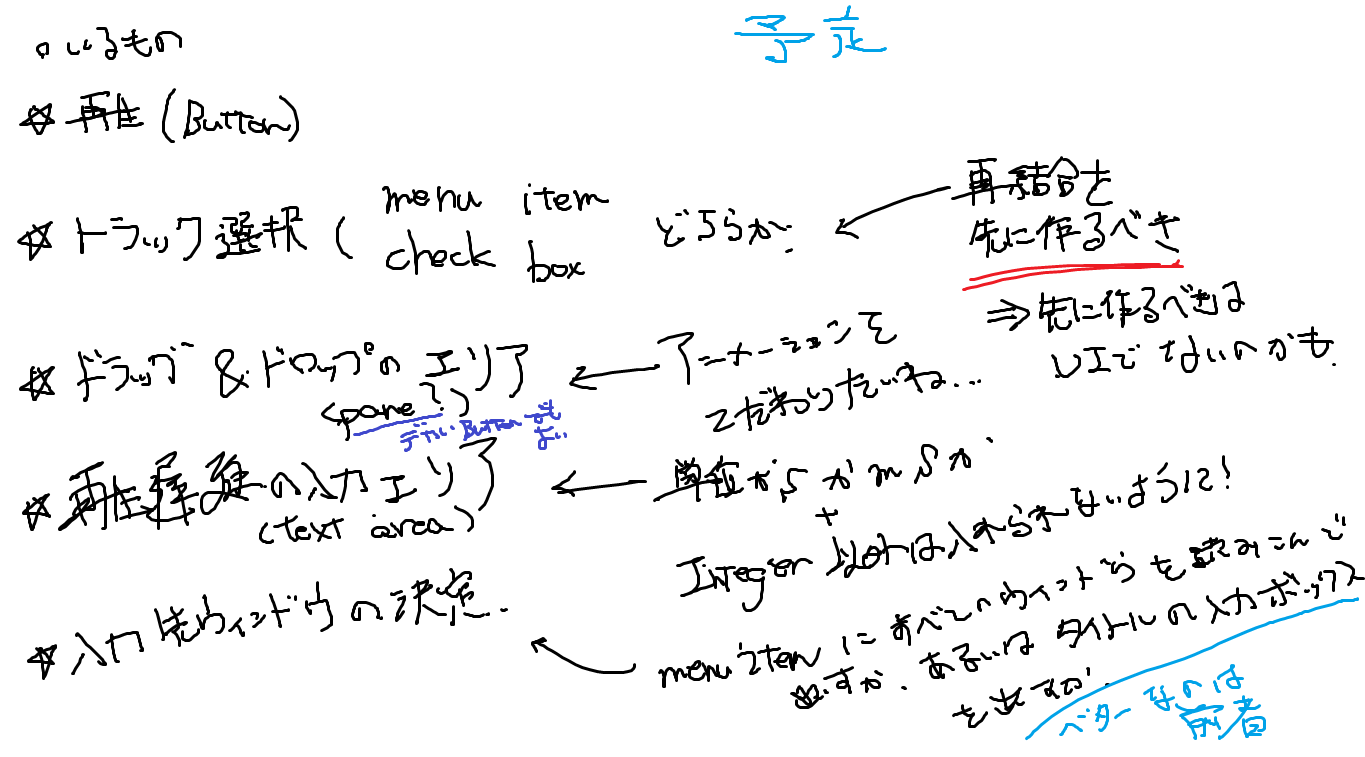 いるもの
☆ 再生 (Button)
☆ トラック選択 (
menu item
check box
どちらか
再結合を
先に作るべき
⇒ 先に作るべきは
UIでないのかも
☆ ドラッグ&ドロップのエリア
(pane?)
デカいButtonでも
よい
アニメーションを
こだわりたいね...
☆ 再生遅延の入力エリア
(text area)
単位がsかmsか
+
Integer 以外は入れられないように!
☆ 入力先ウィンドウの決定
menuItem にすべてのウィンドウを読みこんで
出すか、あるいはタイトルの入力ボックス
を出すか
ベターなのは
前者